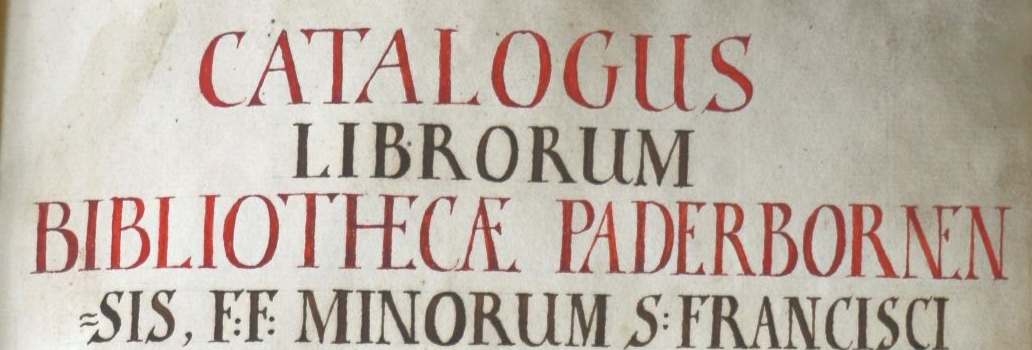 CATALOGUS
LIBRORUM
BIBLIOTHECÆ PADERBORNEN
≈SIS, F:F: MINORUM S: FRANCISCI